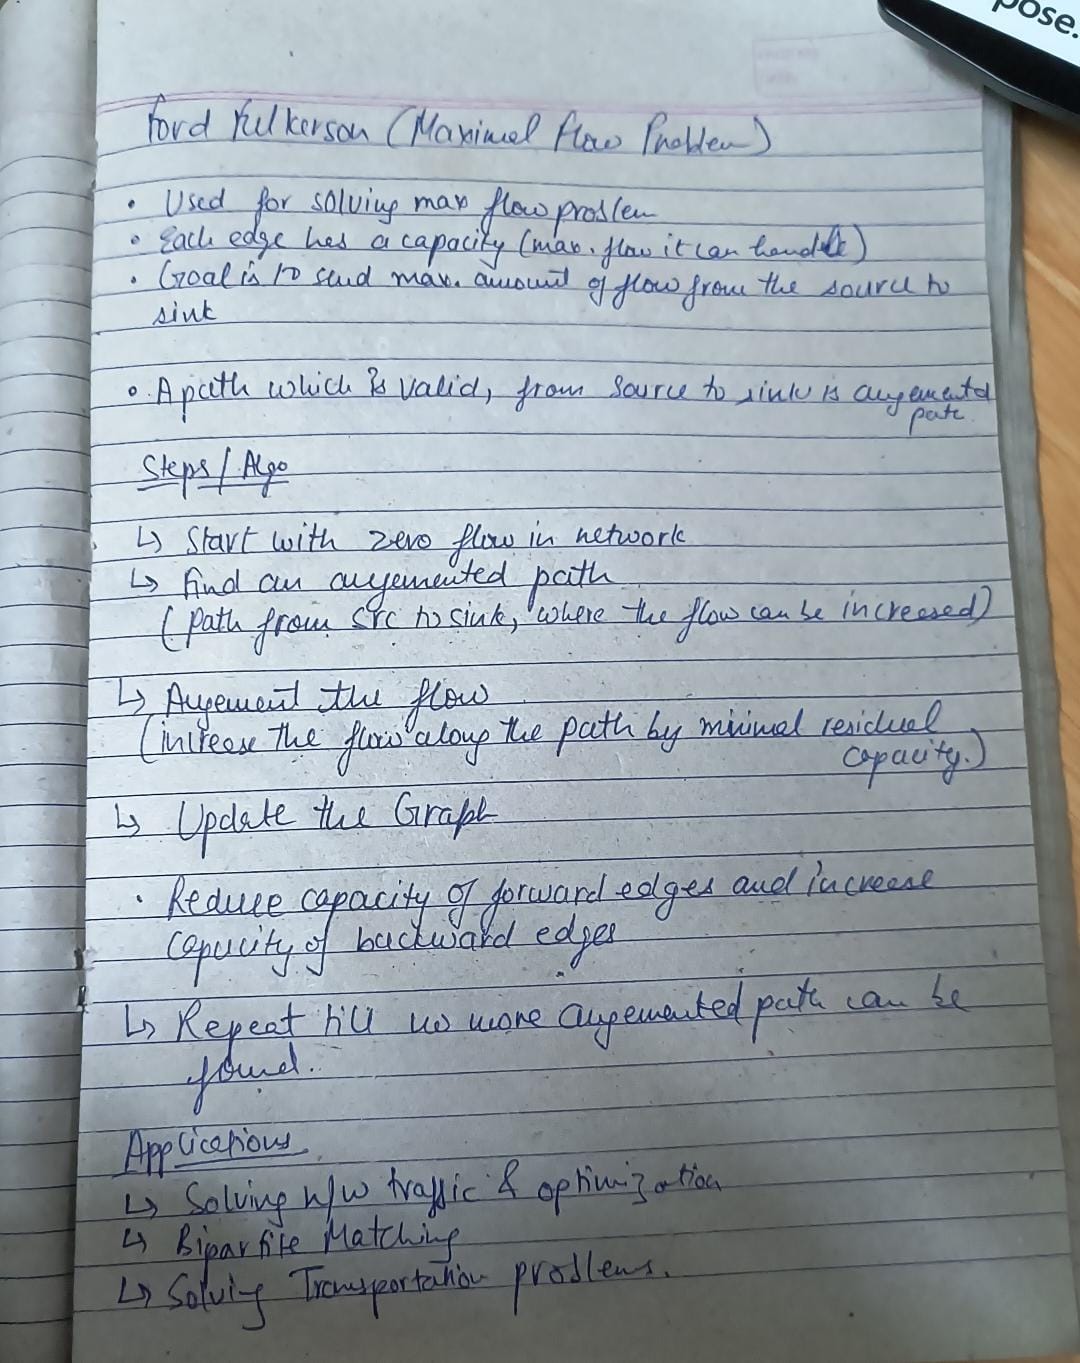 pose.
Ford Fulkerson (Maximal flow Problem)
• Used for solving max flow problem
• Each edge has a capacity (max. flow it can handle)
• Goal is to send max. amount of flow from the source to
sink
• A path which is valid, from source to sink is augemented
path.
Steps / Algo
↳ Start with zero flow in network
↳ find an augemented path
(path from src to sink, where the flow can be increased)
↳ Augement the flow
(increase the flow along the path by minimal residual
capacity.)
↳ Update the Graph
• Reduce capacity of forward edges and increase
capacity of backward edges
↳ Repeat till no more augemented path can be
found.
Applications
↳ Solving n/w traffic & optimization
↳ Bipartite Matching
↳ Solving Transportation problems.